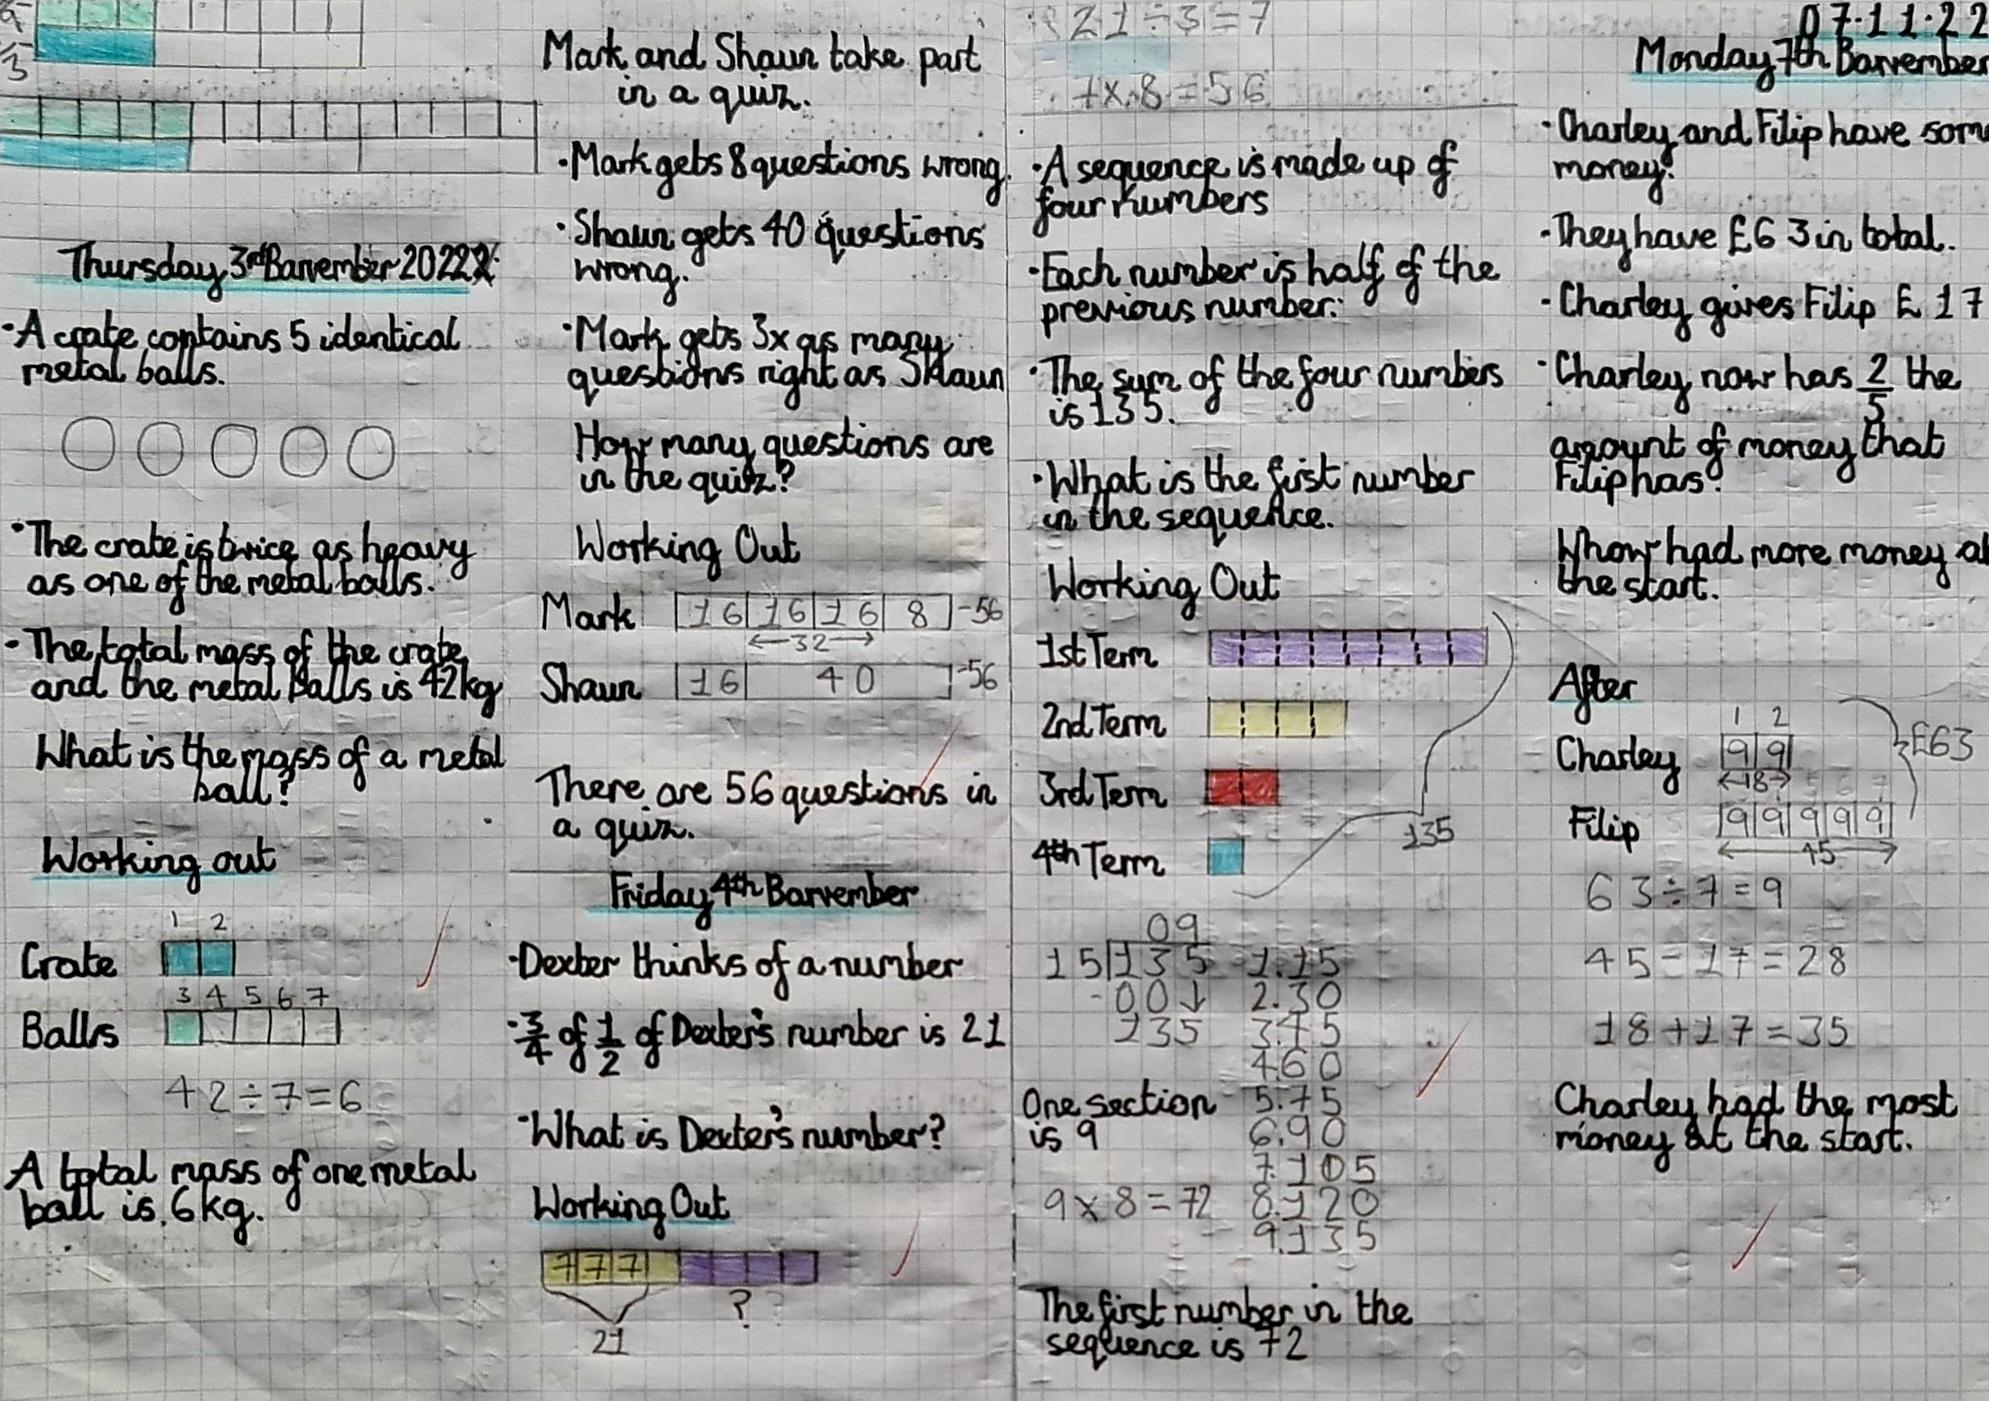 5
13
Thursday 3rd Barvember 2022
• A crate contains 5 identical
metal balls.
• The crate is twice as heavy
as one of the metal balls.
• The total mass of the crate
and the metal balls is 42kg
What is the mass of a metal
ball?
Working out
1 2
Crate
3 4 5 6 7
Balls
42÷7=6
A total mass of one metal
ball is 6kg.
Mark and Shaun take part
in a quiz.
• Mark gets 8 questions wrong.
• Shaun gets 40 questions
wrong.
• Mark gets 3x as many
questions right as Shaun
How many questions are
in the quiz?
Working Out
Mark 16 16 16 8 -56
32
Shaun 16 40 -56
There are 56 questions in
a quiz.
Friday 4th Barvember
• Dexter thinks of a number
• 3/4 of 1/2 of Dexter's number is 21
• What is Dexter's number?
Working Out
7 7 7
21 ?
21÷3=7
7×8=56
• A sequence is made up of
four numbers
• Each number is half of the
previous number.
• The sum of the four numbers
is 135.
• What is the first number
in the sequence.
Working Out
1st Term
2nd Term
3rd Term
135
4th Term
09
15 135 1.15
-00↓ 2.30
135 3.45
4.60
One section 5.75
is 9 6.90
7.105
9×8=72 8.120
9.135
The first number in the
sequence is 72
07.11.22
Monday 7th Barvember
• Charley and Filip have som
money.
• They have £63 in total.
• Charley gives Filip £17
• Charley now has 2/5 the
amount of money that
Filip has?
Whow had more money a
the start.
After
1 2
Charley 9 9 £63
18
Filip 9 9 9 9 9
45
63÷7=9
45-17=28
18+17=35
Charley had the most
money at the start.